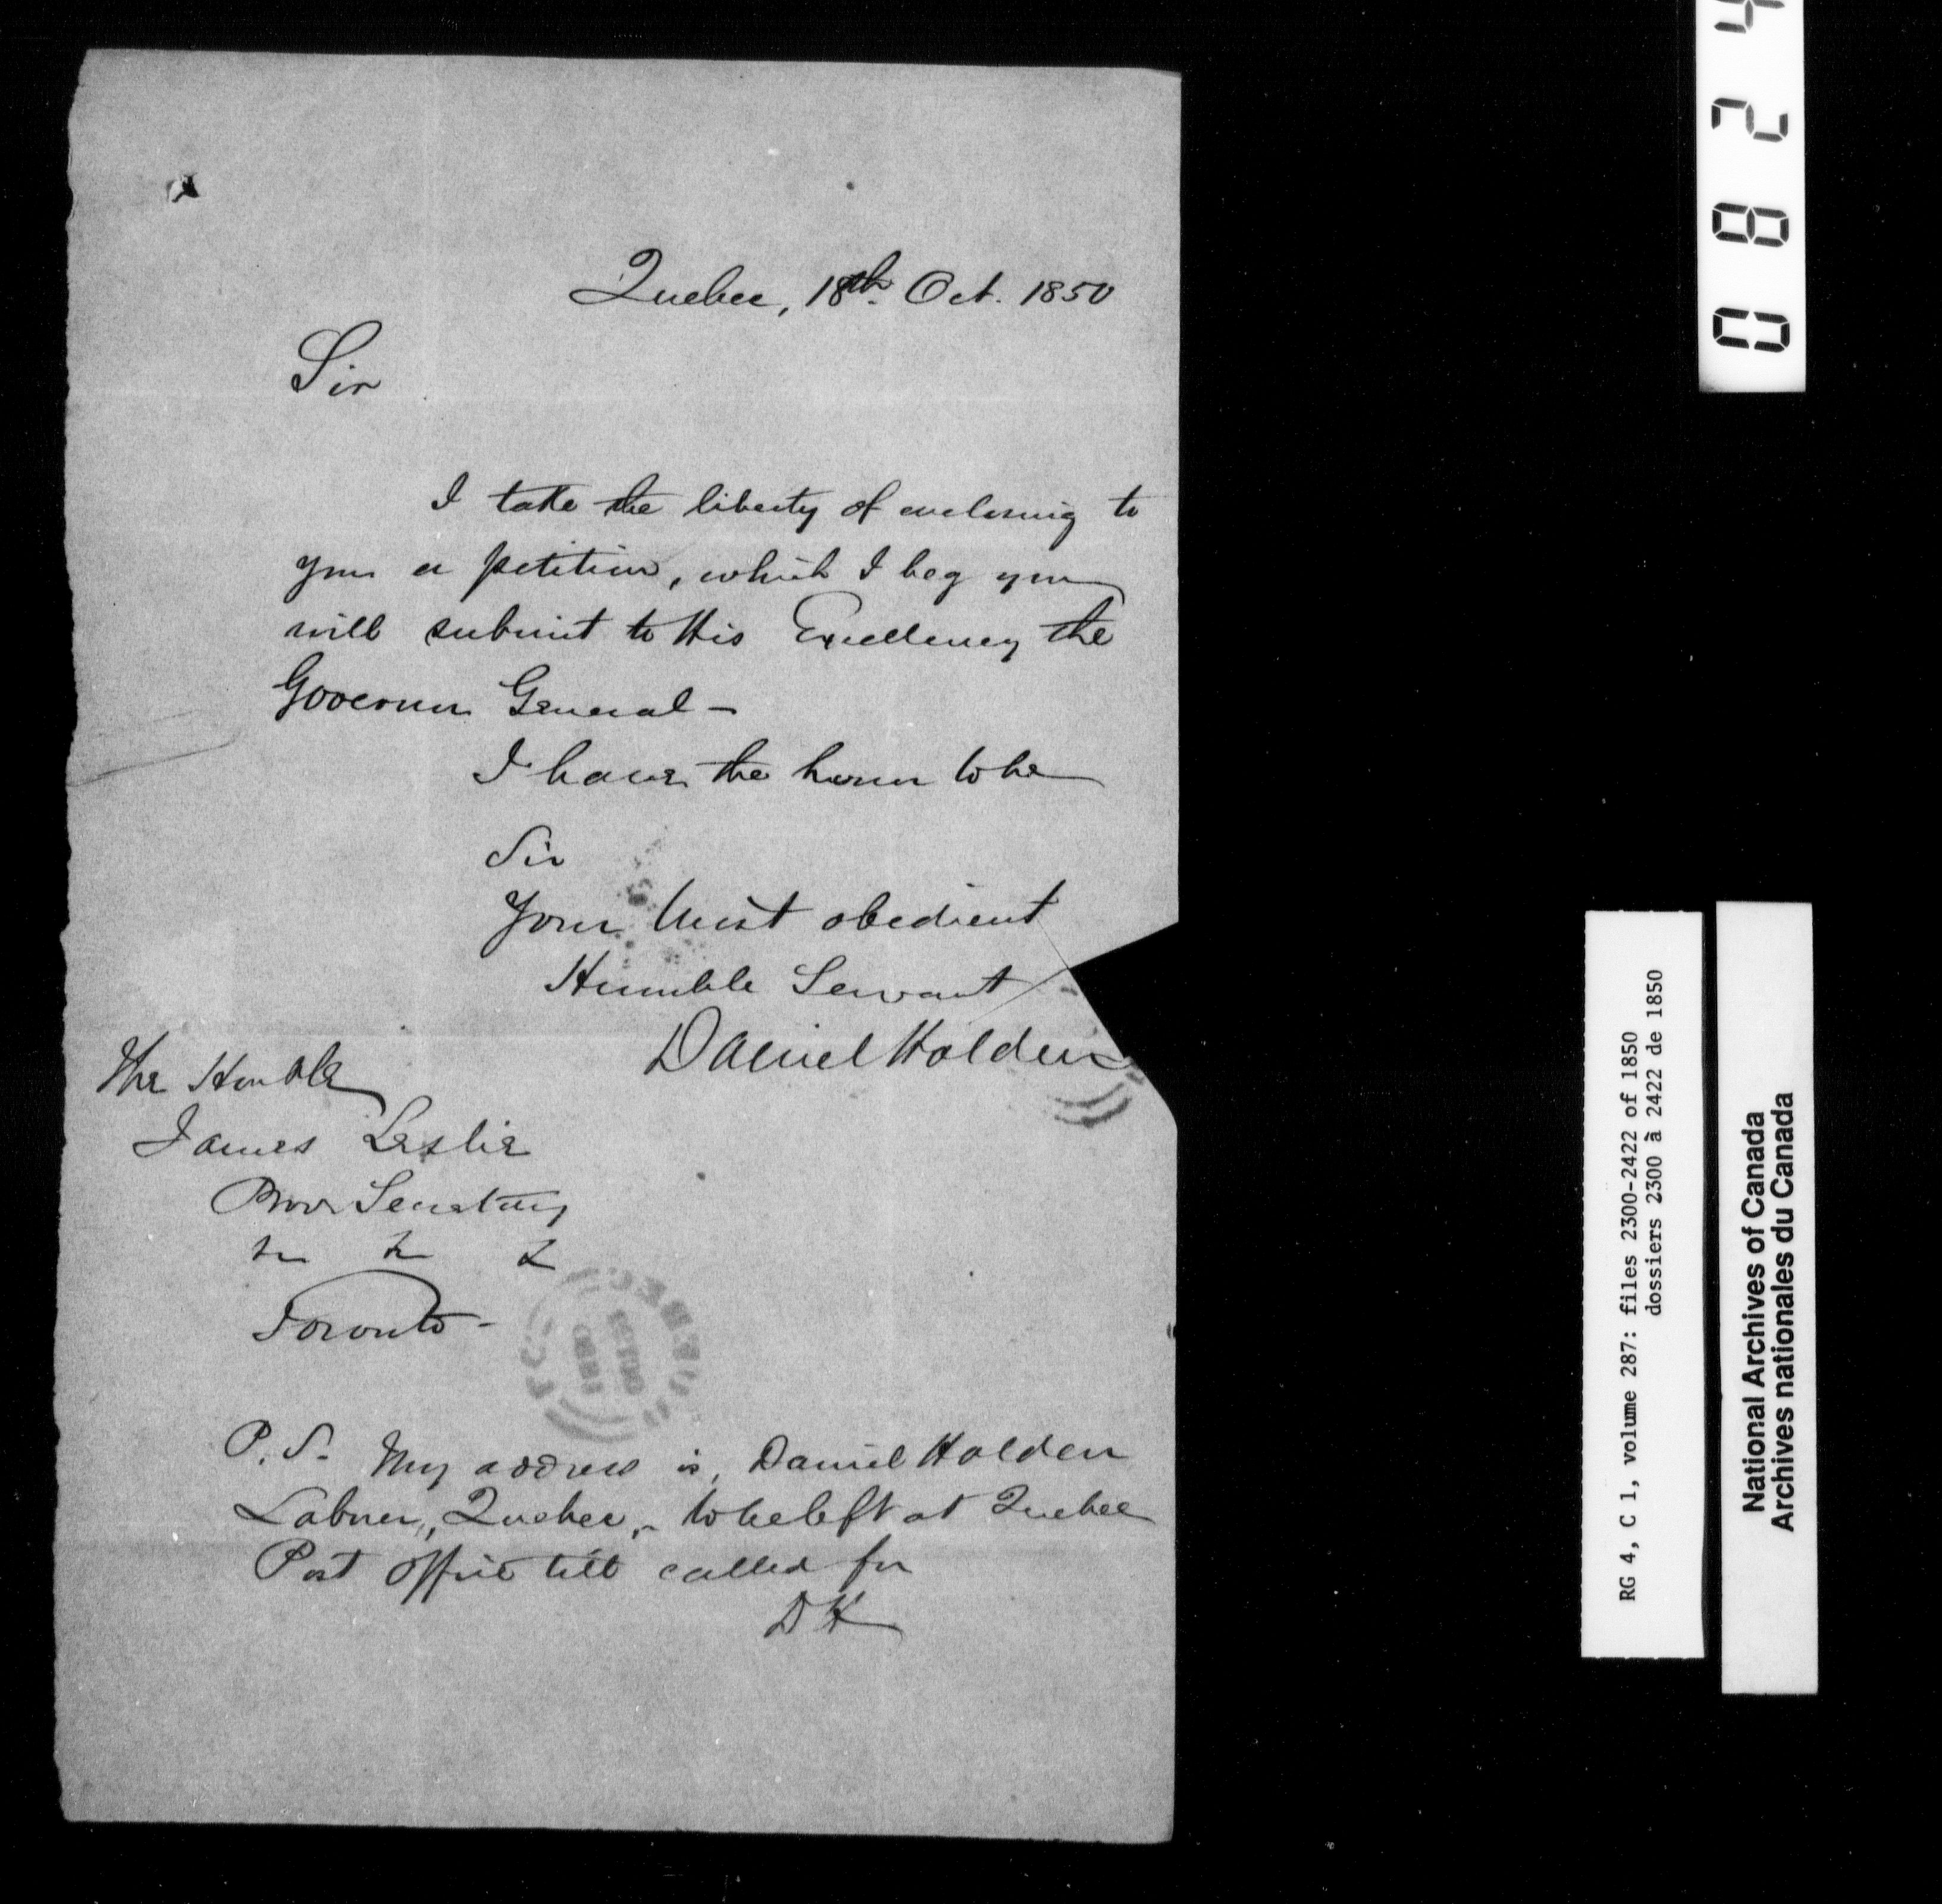 Quebec, 18th. Oct. 1850
Sir
I take the liberty of enclosing to
you a petition, which I beg you
will submit to His Excellency the
Governor General —
I have the honor to be
Sir
Your Most obedient
Humble Servant
Daniel Holden
The Honble
James Leslie
Prov Secretary
&c &c &c
Toronto -
P.S. My address is, Daniel Holden
Laborer, Quebec, - to be left at Quebec
Post Office till called for
DH
QUEBEC
0824
RG 4, C 1, volume 287: files 2300-2422 of 1850
dossiers 2300 à 2422 de 1850
National Archives of Canada
Archives nationales du Canada